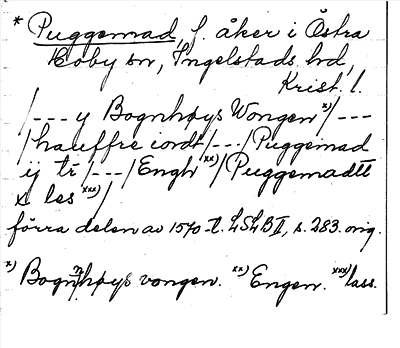 * Puggemad, f. åker i Östra
Hoby sn, Ingelstads hd,
Krist. l.
/--- y Bognhøys Wongen x)/---
/hauffre iordt/---/Puggemad
ij tr/---/Engh xx)/Puggemadtt
x les xxx)/
förra delen av 1570-t. LSLB II, s. 283. orig.
x) Bognhøys vongen. xx) Engen. xxx) lass.